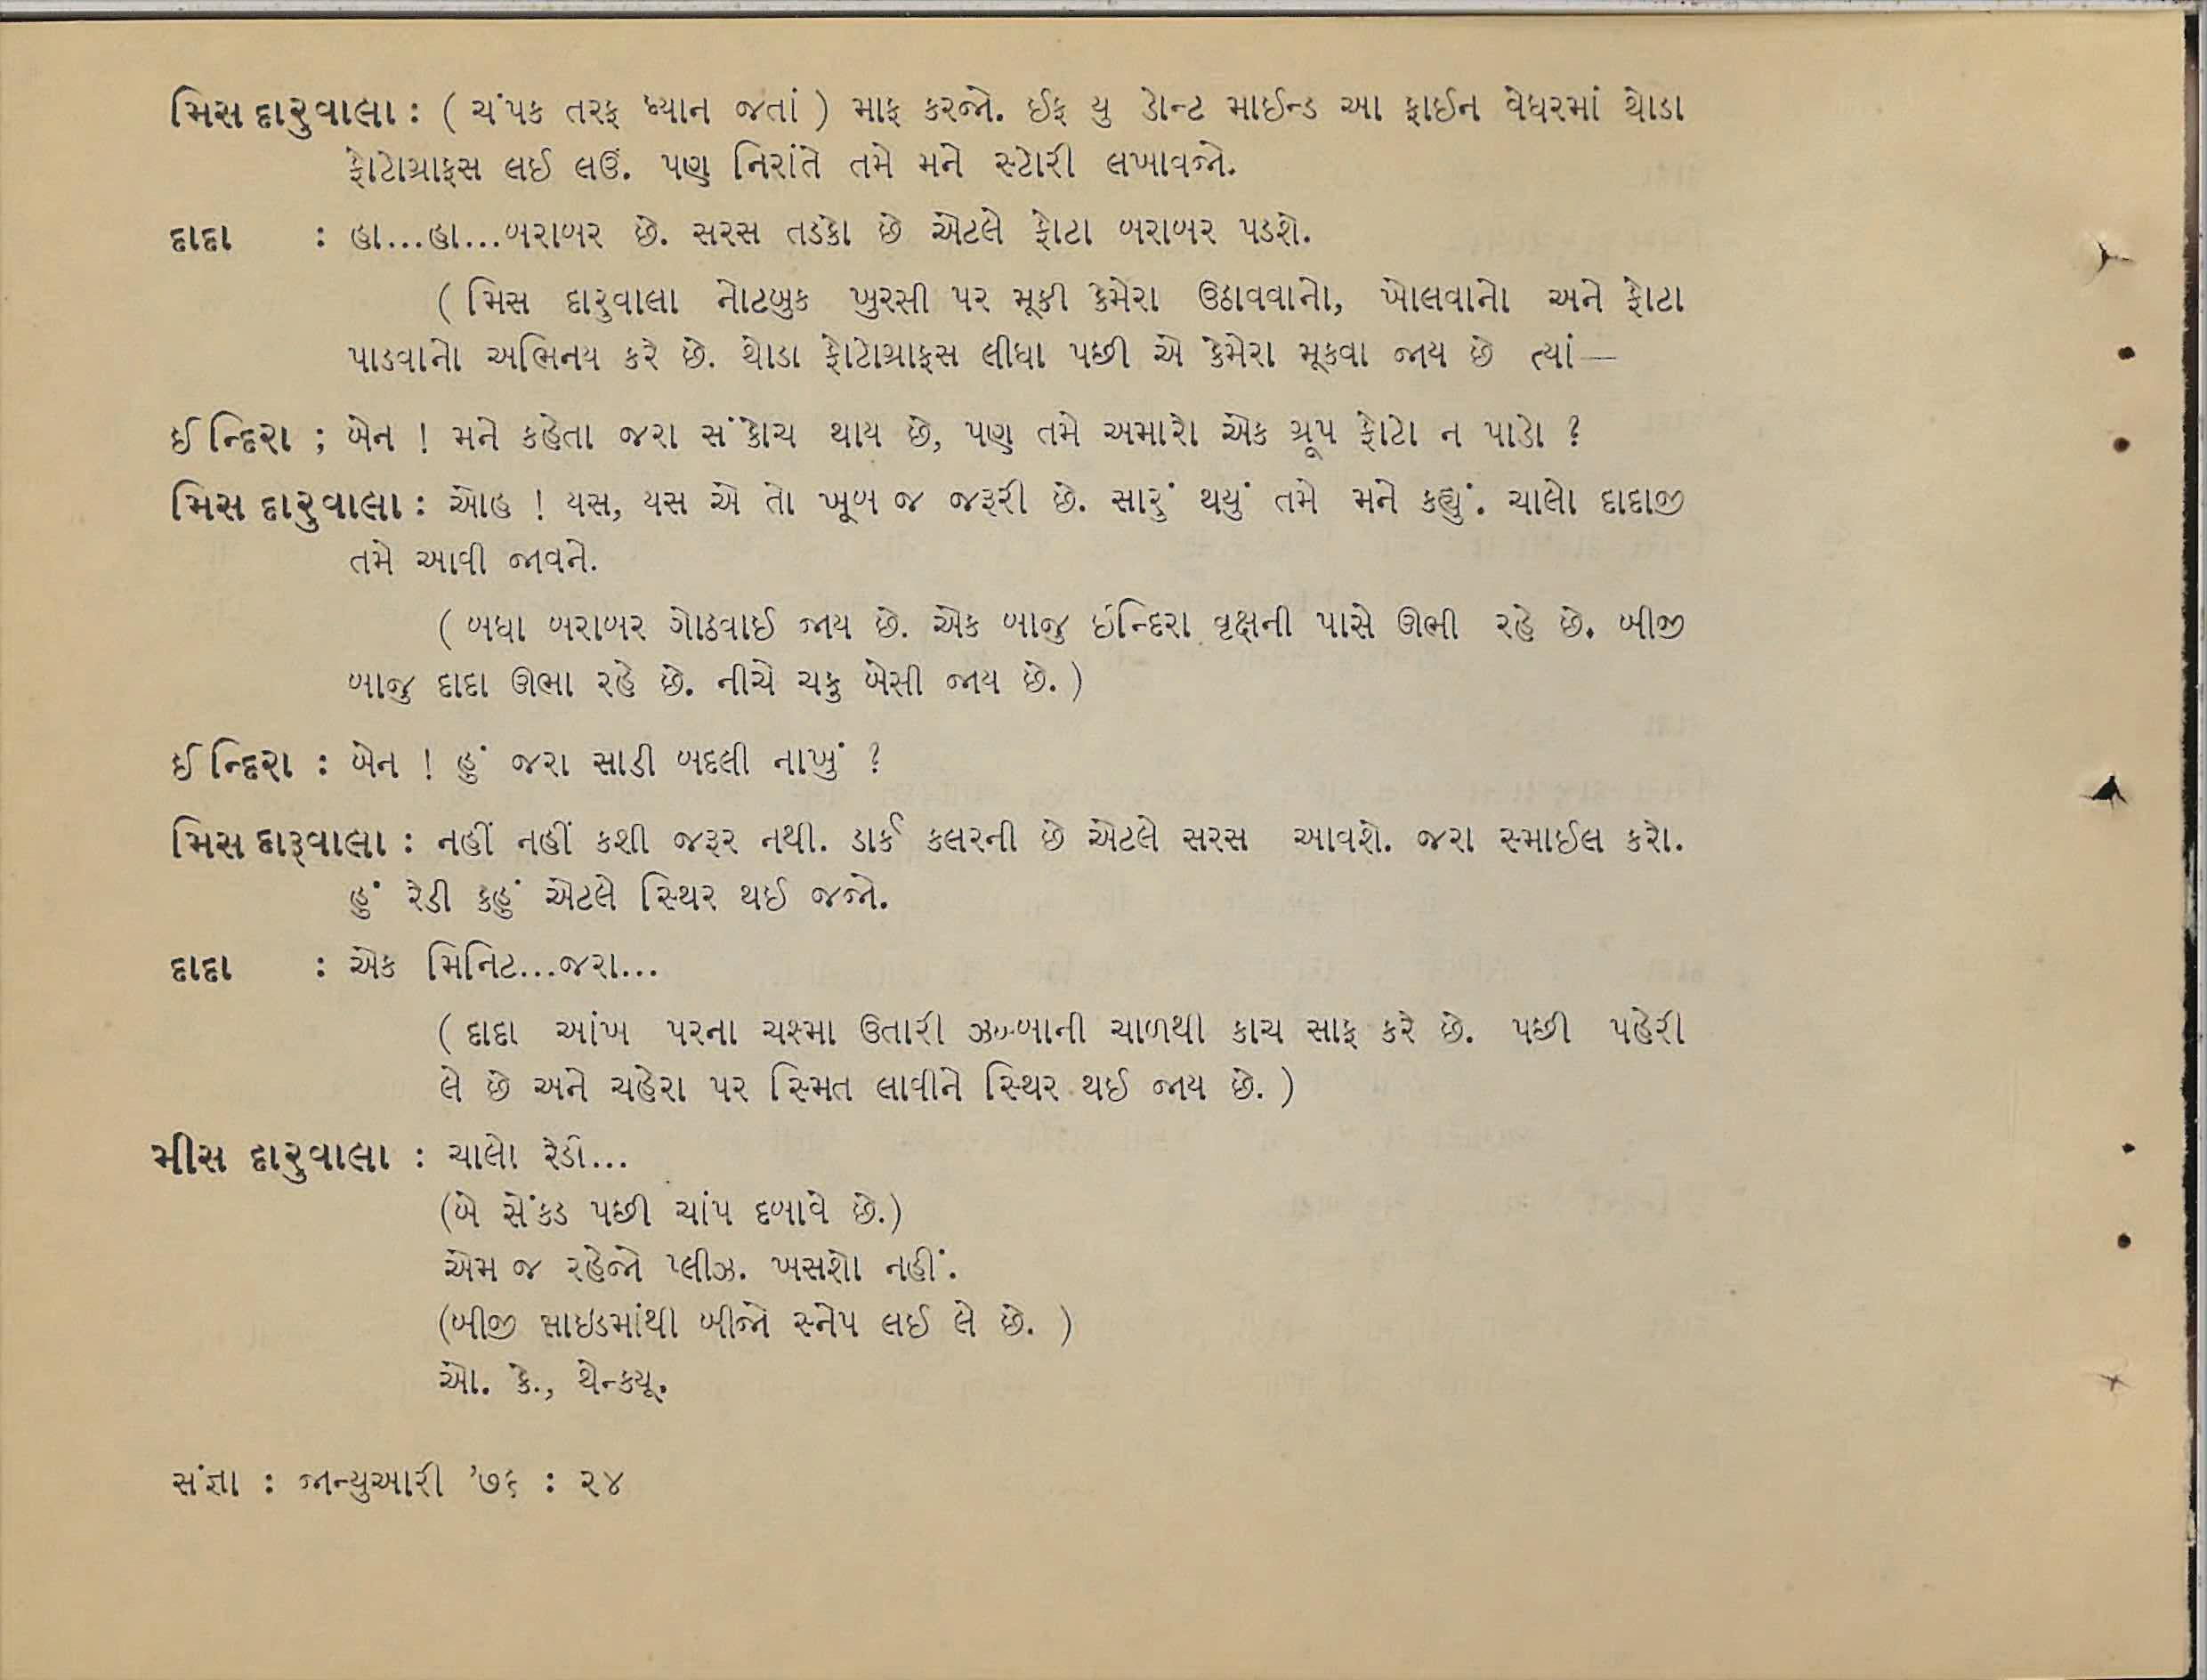 મિસ દારુવાલા : ( ચંપક તરફ ધ્યાન જતાં ) માફ કરજો. ઈફ યુ ડોન્ટ માઈન્ડ આ ફાઈન વેધરમાં થોડા
ફોટોગ્રાફસ લઈ લઉં. પણ નિરાંતે તમે મને સ્ટોરી લખાવજો.
દાદા : હા...હા...બરાબર છે. સરસ તડકો છે એટલે ફોટા બરાબર પડશે.
( મિસ દારુવાલા નોટબુક ખુરસી પર મૂકી કેમેરા ઉઠાવવાનો, ખોલવાનો અને ફોટા
પાડવાનો અભિનય કરે છે. થોડા ફોટોગ્રાફસ લીધા પછી એ કેમેરા મૂકવા જાય છે ત્યાં—
ઈન્દિરા ; બેન ! મને કહેતા જરા સંકોચ થાય છે, પણ તમે અમારો એક ગ્રૂપ ફોટો ન પાડો ?
મિસ દારુવાલા : ઓહ ! યસ, યસ એ તો ખૂબ જ જરૂરી છે. સારું થયું તમે મને કહ્યું. ચાલો દાદાજી
તમે આવી જાવને.
( બધા બરાબર ગોઠવાઈ જાય છે. એક બાજુ ઇન્દિરા વૃક્ષની પાસે ઊભી રહે છે. બીજી
બાજુ દાદા ઊભા રહે છે. નીચે ચકુ બેસી જાય છે. )
ઈન્દિરા : બેન ! હું જરા સાડી બદલી નાખું ?
મિસ દારૂવાલા : નહીં નહીં કશી જરૂર નથી. ડાર્ક કલરની છે એટલે સરસ આવશે. જરા સ્માઈલ કરો.
હું રેડી કહું એટલે સ્થિર થઈ જજો.
દાદા : એક મિનિટ...જરા...
( દાદા આંખ પરના ચશ્મા ઉતારી ઝબ્બાની ચાળથી કાચ સાફ કરે છે. પછી પહેરી
લે છે અને ચહેરા પર સ્મિત લાવીને સ્થિર થઈ જાય છે. )
મીસ દારુવાલા : ચાલો રેડી...
(બે સેંકડ પછી ચાંપ દબાવે છે.)
એમ જ રહેજો પ્લીઝ. ખસશો નહીં.
(બીજી સાઇડમાંથી બીજો સ્નેપ લઈ લે છે. )
ઓ. કે., થેન્કયૂ.
સંજ્ઞા : જાન્યુઆરી ’૭૬ : ૨૪